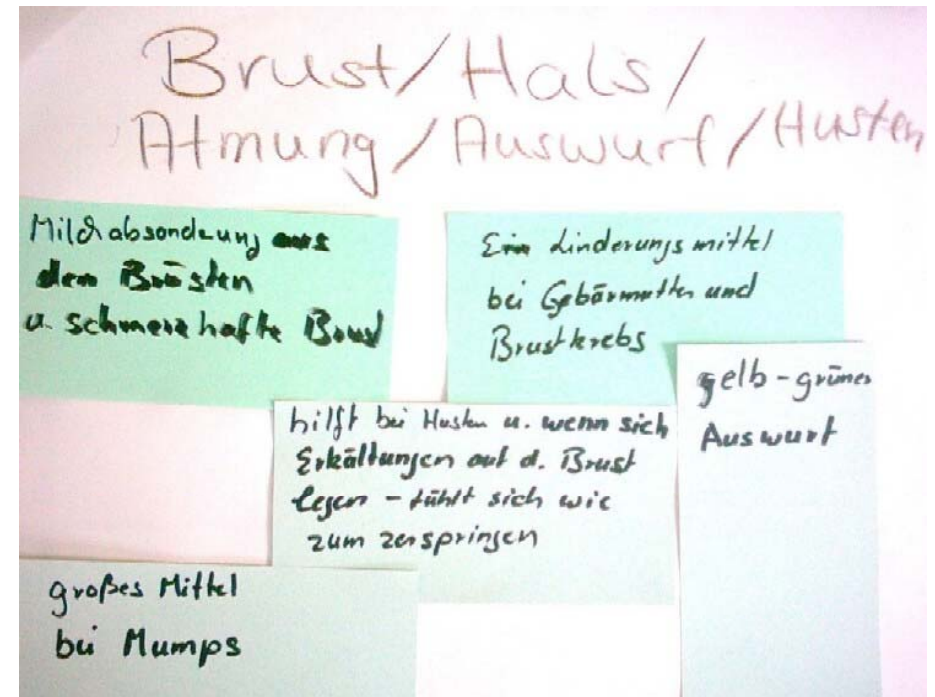 Brust/Hals/
Atmung/Auswurf/Husten
Milchabsonderung aus
den Brüsten
u. schmerzhafte Brust
Ein Linderungsmittel
bei Gebärmutter und
Brustkrebs
gelb-grüner
Auswurf
hilft bei Husten u. wenn sich
Erkältungen auf d. Brust
legen - fühlt sich wie
zum zerspringen
großes Mittel
bei Mumps